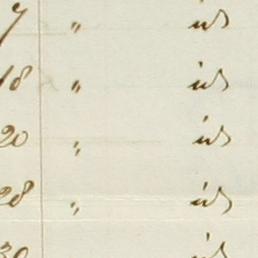 7 " id
18 " id
20 " id
28 " id
30 id